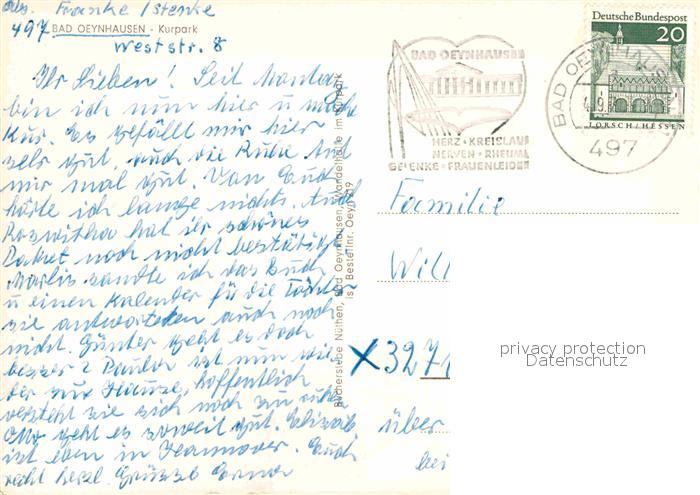 Abs. Franke / Istenke
497 BAD OEYNHAUSEN - Kurpark
Weststr. 8
Ihr Lieben! Seit Montag
bin ich nun hier u mache
Kur. Es gefällt mir hier
sehr gut, auch die Ruhe tut
mir mal gut. Von Euch
hörte ich lange nichts. Auch
Roswitha hat ihr schönes
Paket noch nicht bestätigt
Marlis sandte ich das Buch
u einen Kalender für die Töchter
sie antworteten auch noch
nicht. Günter geht es doch
besser? Paula ist nun wie
der zur Hause, hoffentlich
versteht sie sich noch zu
Otto geht es soweit gut. Elisab
ist eben in Hannover. Euch
recht herzl. Grüsse Erna
Bücherstube Nüthen, Bad Oeynhausen, Wandelhalle im Kurpark
Bestellnr. Oeyn 19
BAD OEYNHAUSEN
HERZ · KREISLAUF
NERVEN · RHEUMA
GELENKE · FRAUENLEIDEN
BAD OEYNHAUSEN
497
Deutsche Bundespost
20
LORSCH/HESSEN
Familie
Will
x 3271
über
bei
privacy protection
Datenschutz